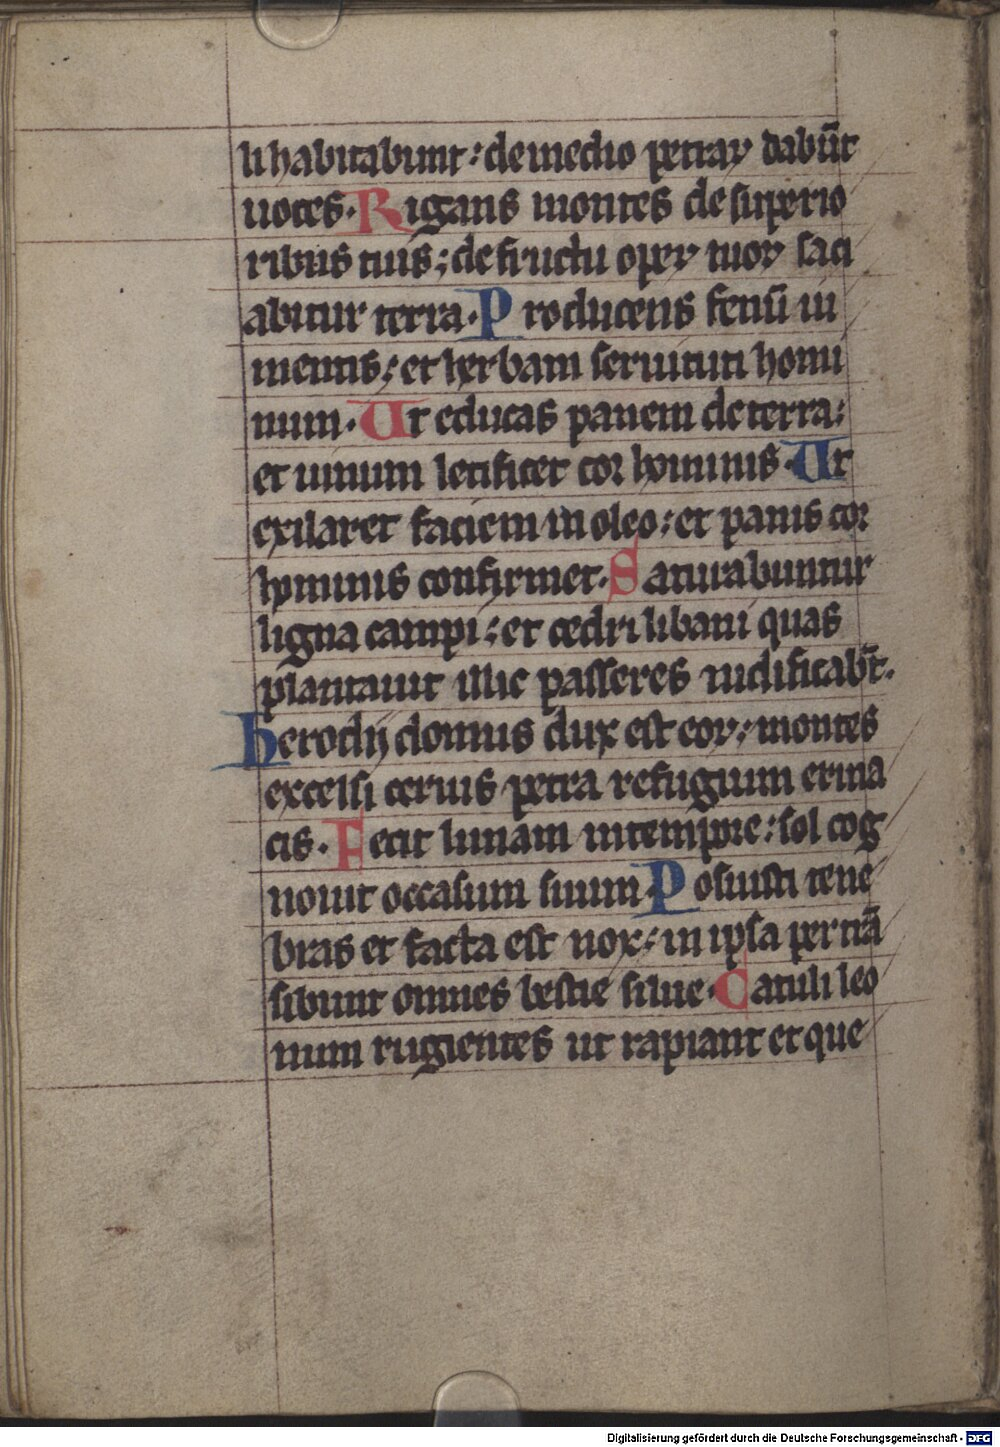 li habitabunt : de medio petraꝝ dabūt
uoces . Rigans montes de superio
ribus tuis ; de fructu operꝝ tuoꝝ saci
abitur terra . Producens fenū iu
mentis ; et herbam seruituti homi
num . Ut educas panem de terra :
et uinum letificet cor hominis . Ut
exilaret faciem in oleo : et panis cor
hominis confirmet . Saturabuntur
ligna campi : et cedri libani quas
plantauit illic passeres nidificabūt .
herodij domus dux est eoꝝ : montes
excelsi ceruis petra refugium erina
ciis . Fecit lunam in tempore : sol cog
nouit occasum suum . Posuisti tene
bras et facta est nox : in ipsa pertrā
sibunt omnes bestie silue . Catuli leo
num rugientes ut rapiant et que
Digitalisierung gefördert durch die Deutsche Forschungsgemeinschaft - DFG